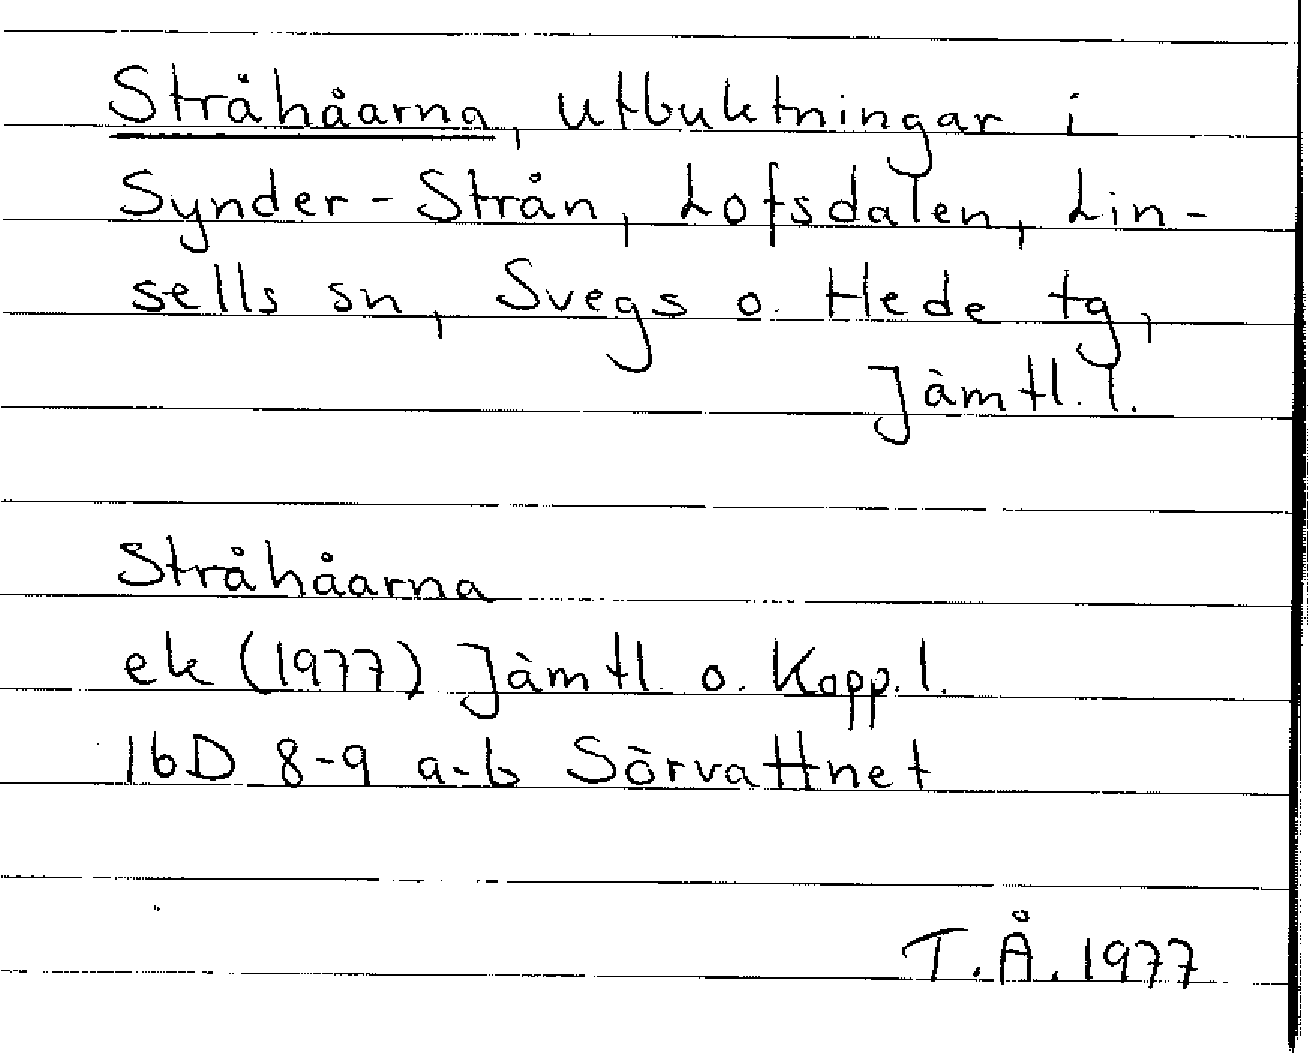 Stråhåarna, utbuktningar i
Synder-Strån, Lofsdalen, Lin-
sells sn, Svegs o. Hede tg,
Jämtl. l.
Stråhåarna
ek (1977) Jämtl o. Kopp. l.
16D 8-9 a-b Sörvattnet
T.Å. 1977